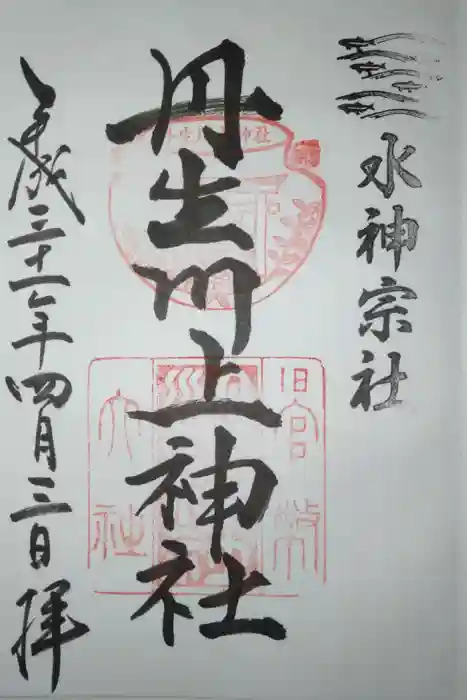 水神宗社
丹生川上神社
旧官幣
大社
平成三十一年四月三日拝